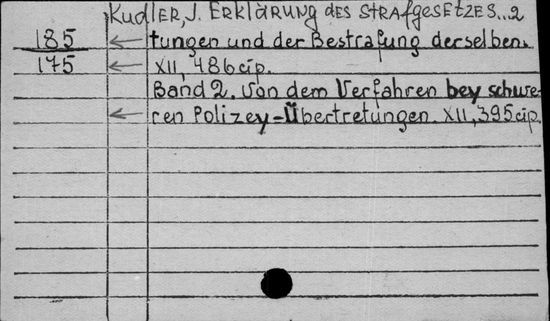 Kudler, J. Erklärung des Strafgesetzes..2
185 ← tungen und der Bestrafung derselben.
175 ← XII, 486 cip.
Band 2. Von dem Verfahren bey schwe-
← ren Polizey-Übertretungen. XII, 395 cip.